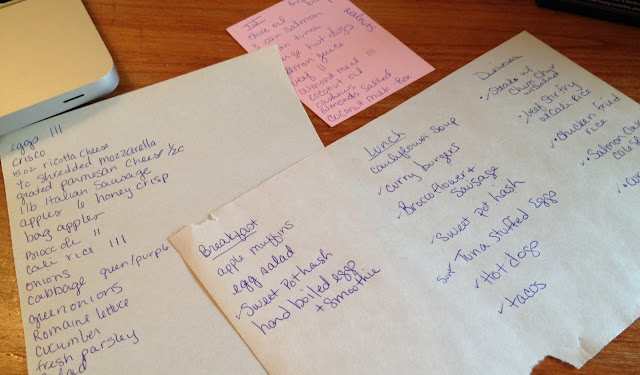 eggs 111
crisco
15oz ricotta cheese
1/2 shredded mozzarella
grated parmesan cheese 1/2c
1lb Italian Sausage
apples 6 honey crisp
bag apples
Broccoli 11
cauli rice 111
onions
cabbage green/purple
green onions
Romaine lettuce
cucumber
fresh parsley
olive oil
3 can salmon
can tuna
hot dogs
lemon juice
beef 11
almond meal
coconut oil
almonds salted
coconut milk
Breakfast
apple muffins
egg salad
Sweet Pot hash
hard boiled eggs
+ smoothie
Lunch
cauliflower soup
curry burgers
Broccoflower +
sausage
Sweet pot hash
Tuna Stuffed Eggs
Hot dogs
tacos
Dinner
Steaks w/
beef stir fry
w/ cauli Rice
chicken fried
rice
Salmon